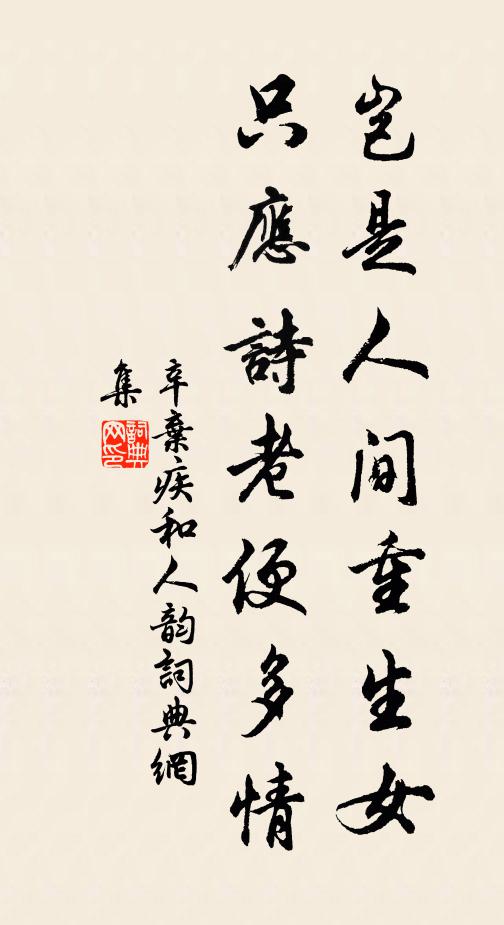 豈是人間重生女
只應詩老便多情
辛棄疾和人韵詞典網
集
詞典網印